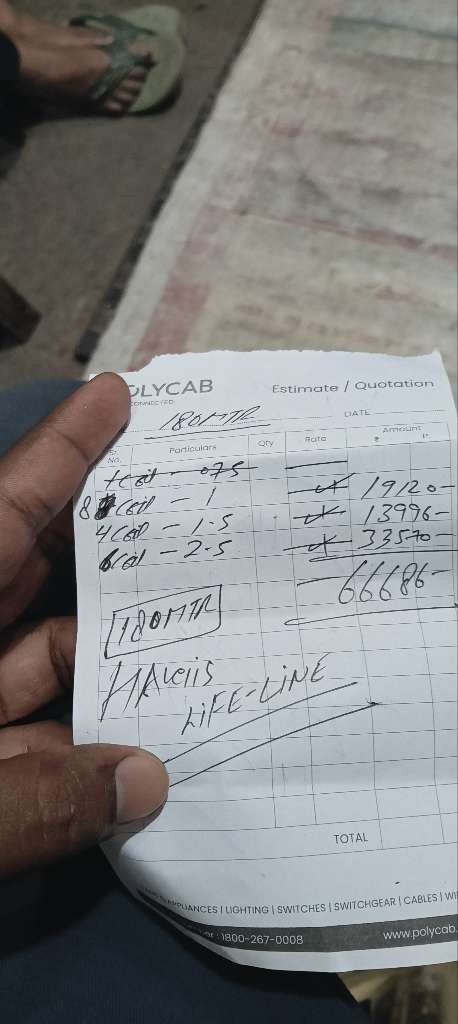 OLYCAB
CONNECTED
Estimate / Quotation
180MTR
DATE
Sr. No. Particulars Qty Rate Amount ₹ P.
1 Coil - .075
8 Coil - 1 19120-
4 Coil - 1.5 13996-
6 Coil - 2.5 33570-
66686-
180MTR
HAvells
LiFE-LiNE
TOTAL
APPLIANCES | LIGHTING | SWITCHES | SWITCHGEAR | CABLES | WI
1800-267-0008 www.polycab.